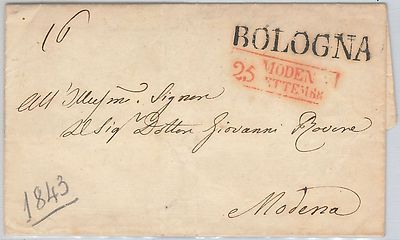 16
BOLOGNA
25 MODEN
ETTEMBR
All' Illusmo. Signore
Il Sig Dottore Giovanni Rovere
1843
Modena